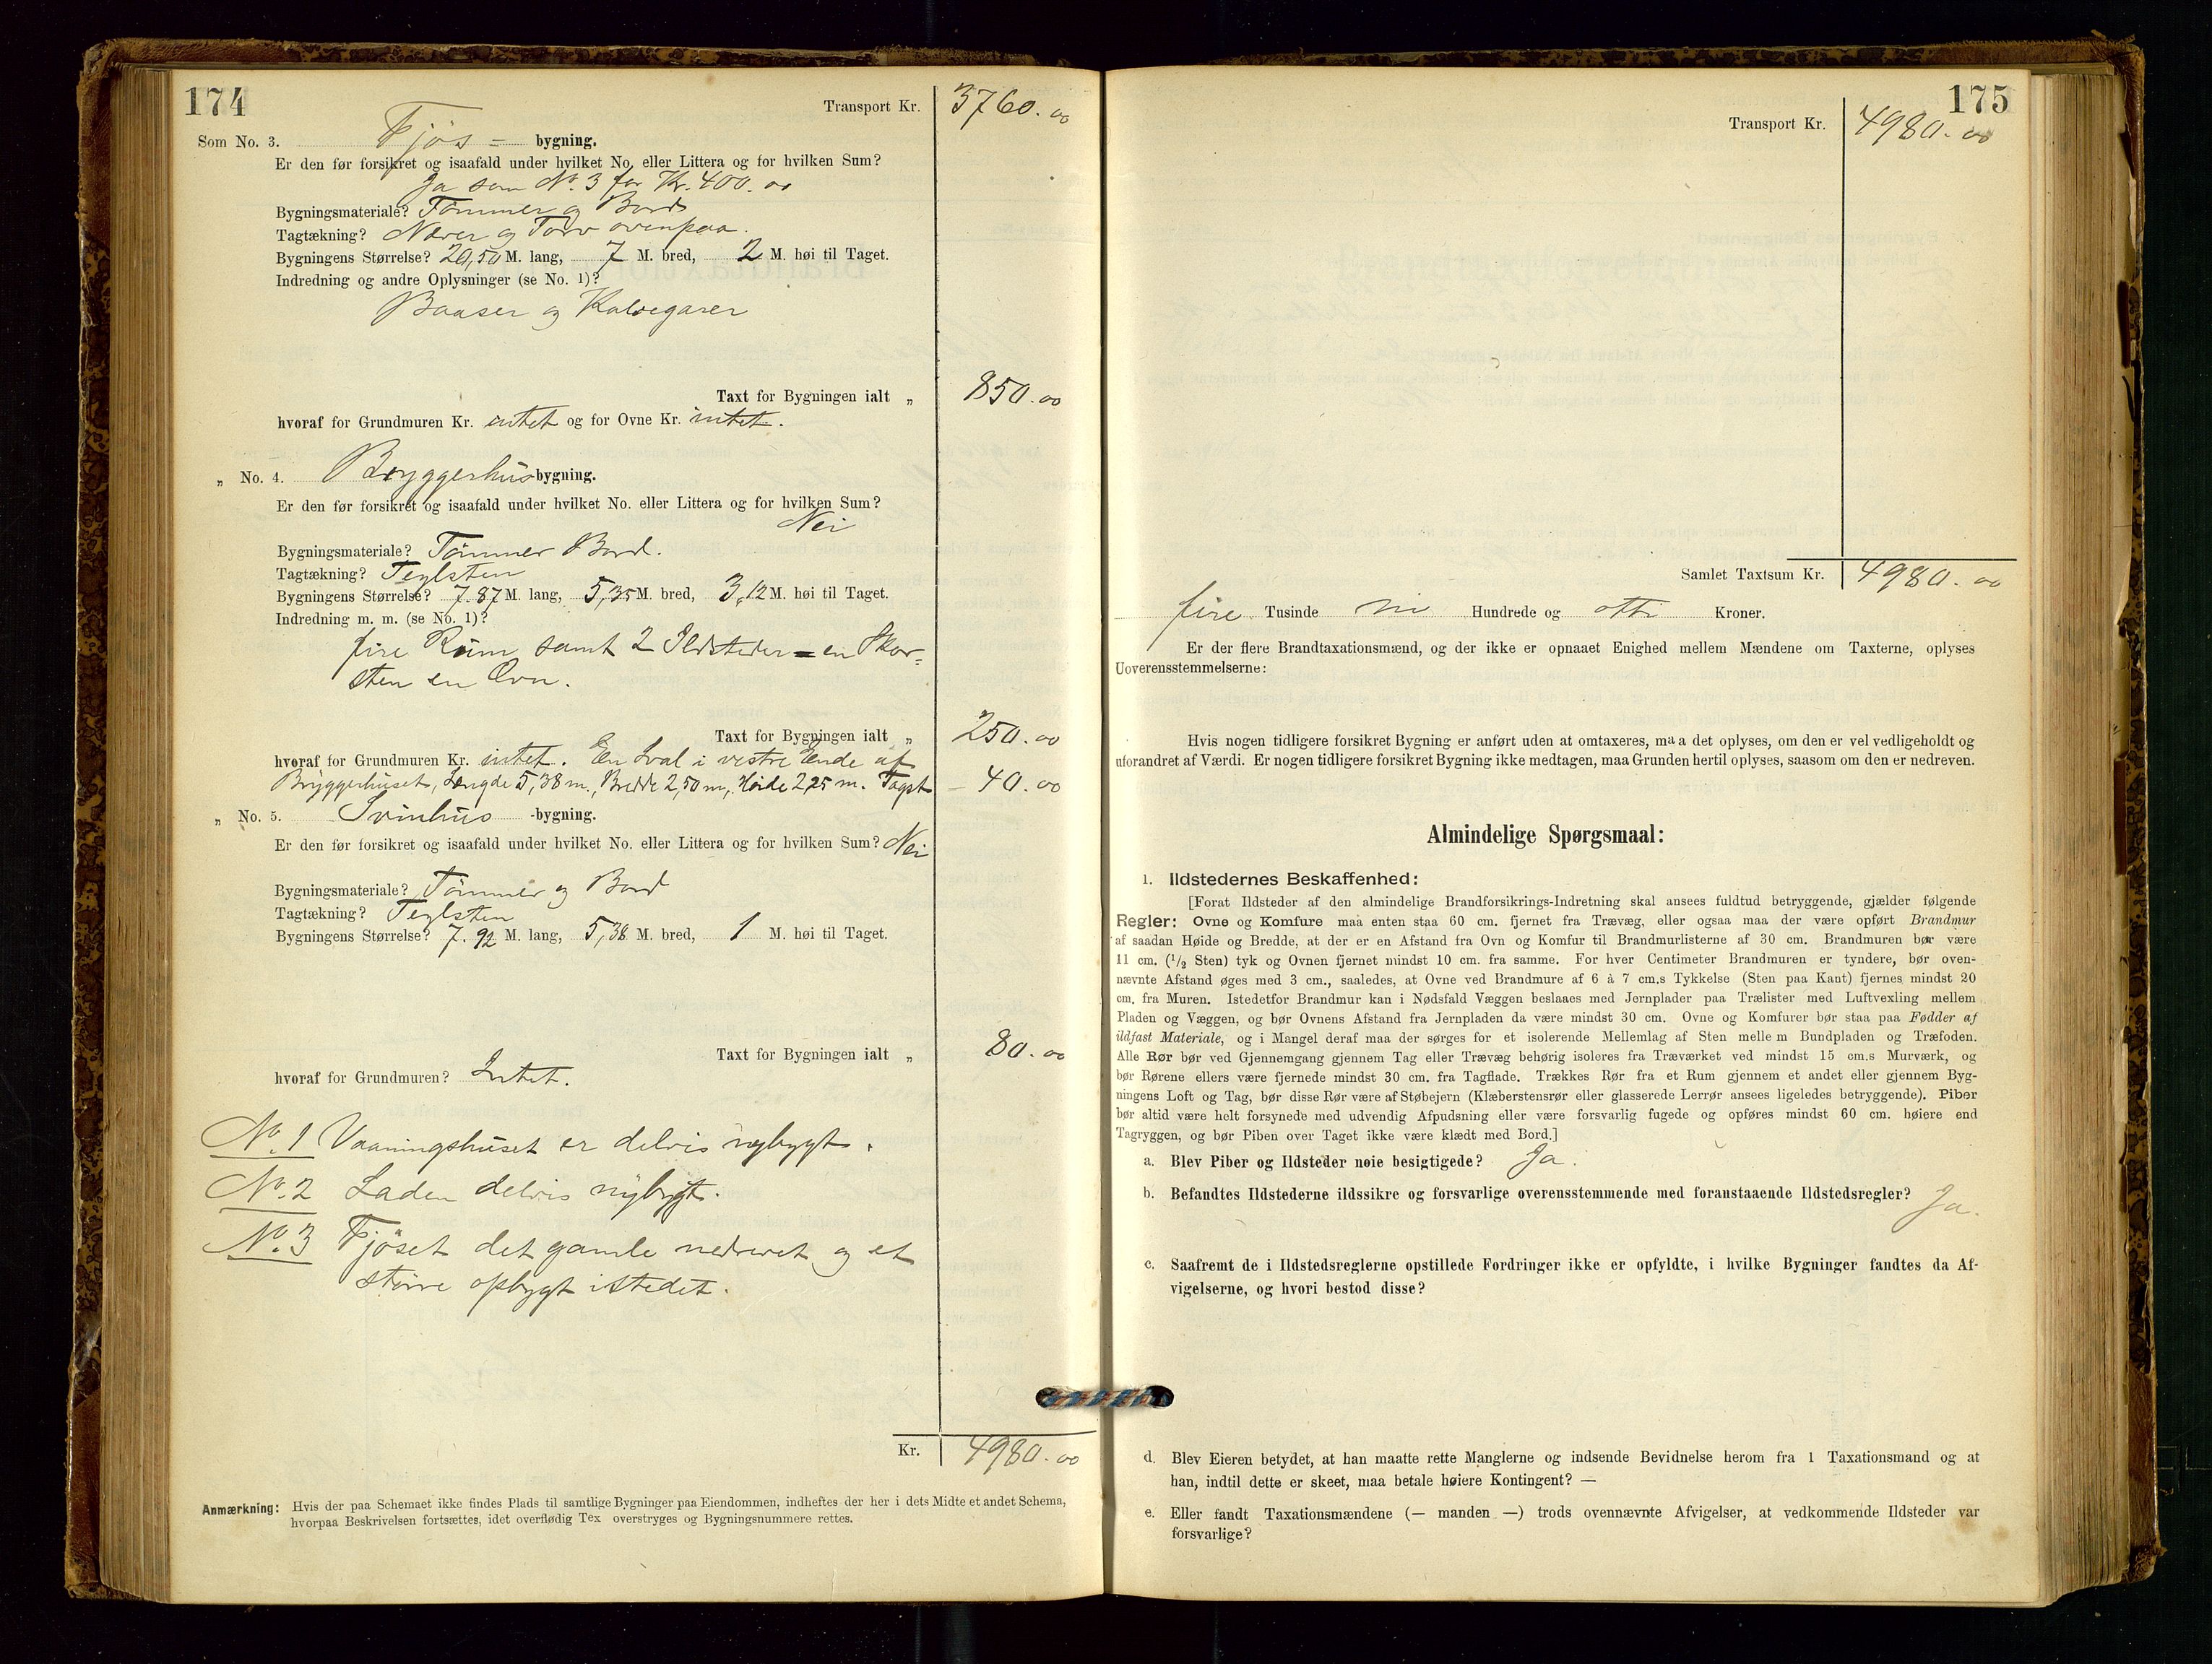 174
Transport Kr. 3760.00
Som No. 3. Fjøs- bygning.
Er den før forsikret og isaafald under hvilket No. eller Littera og for hvilken Sum?
Ja som No. 3 for Kr. 400.00
Bygningsmateriale? Tømmer og Bord
Tagtækning? Næver og Torv ovenpaa.
Bygningens Størrelse? 20,50 M. lang, 7 M. bred, 2 M. høi til Taget.
Indredning og andre Oplysninger (se No. 1)?
Baaser og Kalvegarer
Taxt for Bygningen ialt „ 850.00
hvoraf for Grundmuren Kr. intet og for Ovne Kr. intet.
„ No. 4. Bryggerhus bygning.
Er den før forsikret og isaafald under hvilket No. eller Littera og for hvilken Sum?
Nei
Bygningsmateriale? Tømmer Bord.
Tagtækning? Teglsten
Bygningens Størrelse? 7.87 M. lang, 5,35 M. bred, 3,12 M. høi til Taget.
Indredning m. m. (se No. 1)?
fire Rum samt 2 Ildsteder = en Skor-
sten en Ovn.
Taxt for Bygningen ialt „ 250.00
hvoraf for Grundmuren Kr. intet. En Sval i vestre Ende af
Bryggerhuset, Længde 5,38 m., Bredde 2,50 m, Høide 2,25 m. Tagst – 40.00
„ No. 5. Svinhus -bygning.
Er den før forsikret og isaafald under hvilket No. eller Littera og for hvilken Sum? Nei
Bygningsmateriale? Tømmer og Bord
Tagtækning? Teglsten
Bygningens Størrelse? 7.92 M. lang, 5,38 M. bred, 1 M. høi til Taget.
Taxt for Bygningen ialt „ 80.00
hvoraf for Grundmuren? Intet.
No. 1 Vaaningshuset er delvis nybygt.
No. 2 Laden delvis nybygt.
No. 3 Fjøset det gamle nedrevet og et
større opbygt istedet.
Kr. 4980.00
Anmærkning: Hvis der paa Schemaet ikke findes Plads til samtlige Bygninger paa Eiendommen, indheftes der her i dets Midte et andet Schema,
hvorpaa Beskrivelsen fortsættes, idet overflødig Tex overstryges og Bygningsnummere rettes.
175
Transport Kr. 4980.00
Samlet Taxtsum Kr. 4980.00
fire Tusinde ni Hundrede og otti Kroner.
Er der flere Brandtaxationsmænd, og der ikke er opnaaet Enighed mellem Mændene om Taxterne, oplyses
Uoverensstemmelserne:
Hvis nogen tidligere forsikret Bygning er anført uden at omtaxeres, maa det oplyses, om den er vel vedligeholdt og
uforandret af Værdi. Er nogen tidligere forsikret Bygning ikke medtagen, maa Grunden hertil oplyses, saasom om den er nedreven.
Almindelige Spørgsmaal:
1. Ildstedernes Beskaffenhed:
[Forat Ildsteder af den almindelige Brandforsikrings-Indretning skal ansees fuldtud betryggende, gjælder følgende
Regler: Ovne og Komfure maa enten staa 60 cm. fjernet fra Trævæg, eller ogsaa maa der være opført Brandmur
af saadan Høide og Bredde, at der er en Afstand fra Ovn og Komfur til Brandmurlisterne af 30 cm. Brandmuren bør være
11 cm. (1/2 Sten) tyk og Ovnen fjernet mindst 10 cm. fra samme. For hver Centimeter Brandmuren er tyndere, bør oven-
nævnte Afstand øges med 3 cm., saaledes, at Ovne ved Brandmure af 6 à 7 cm.s Tykkelse (Sten paa Kant) fjernes mindst 20
cm. fra Muren. Istedetfor Brandmur kan i Nødsfald Væggen beslaaes med Jernplader paa Trælister med Luftvexling mellem
Pladen og Væggen, og bør Ovnens Afstand fra Jernpladen da være mindst 30 cm. Ovne og Komfurer bør staa paa Fødder af
ildfast Materiale, og i Mangel deraf maa der sørges for et isolerende Mellemlag af Sten mellem Bundpladen og Træfoden.
Alle Rør bør ved Gjennemgang gjennem Tag eller Trævæg behørig isoleres fra Træværket ved mindst 15 cm.s Murværk, og
bør Rørene ellers være fjernede mindst 30 cm. fra Tagflade. Trækkes Rør fra et Rum gjennem et andet eller gjennem Byg-
ningens Loft og Tag, bør disse Rør være af Støbejern (Klæberstensrør eller glasserede Lerrør ansees ligeledes betryggende). Piber
bør altid være helt forsynede med udvendig Afpudsning eller være forsvarlig fugede og opføres mindst 60 cm. høiere end
Tagryggen, og bør Piben over Taget ikke være klædt med Bord.]
a. Blev Piber og Ildsteder nøie besigtigede? Ja.
b. Befandtes Ildstederne ildssikre og forsvarlige overensstemmende med foranstaaende Ildstedsregler? Ja.
c. Saafremt de i Ildstedsreglerne opstillede Fordringer ikke er opfyldte, i hvilke Bygninger fandtes da Af-
vigelserne, og hvori bestod disse?
d. Blev Eieren betydet, at han maatte rette Manglerne og indsende Bevidnelse herom fra 1 Taxationsmand og at
han, indtil dette er skeet, maa betale høiere Kontingent? —
e. Eller fandt Taxationsmændene (— manden —) trods ovennævnte Afvigelser, at vedkommende Ildsteder var
forsvarlige?